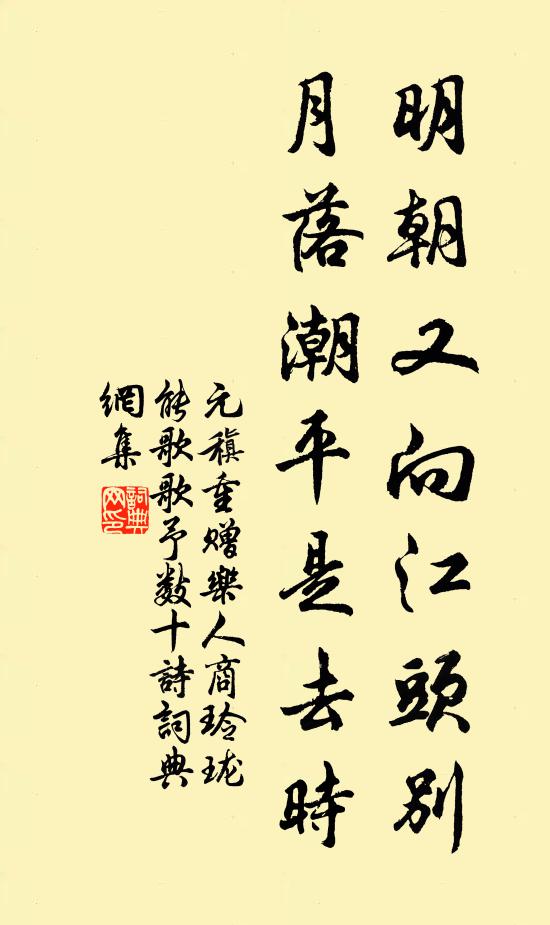 明朝又向江頭別
月落潮平是去時
元稹重赠樂人商玲珑
能歌歌予数十詩詞典
網集
詞典
网印